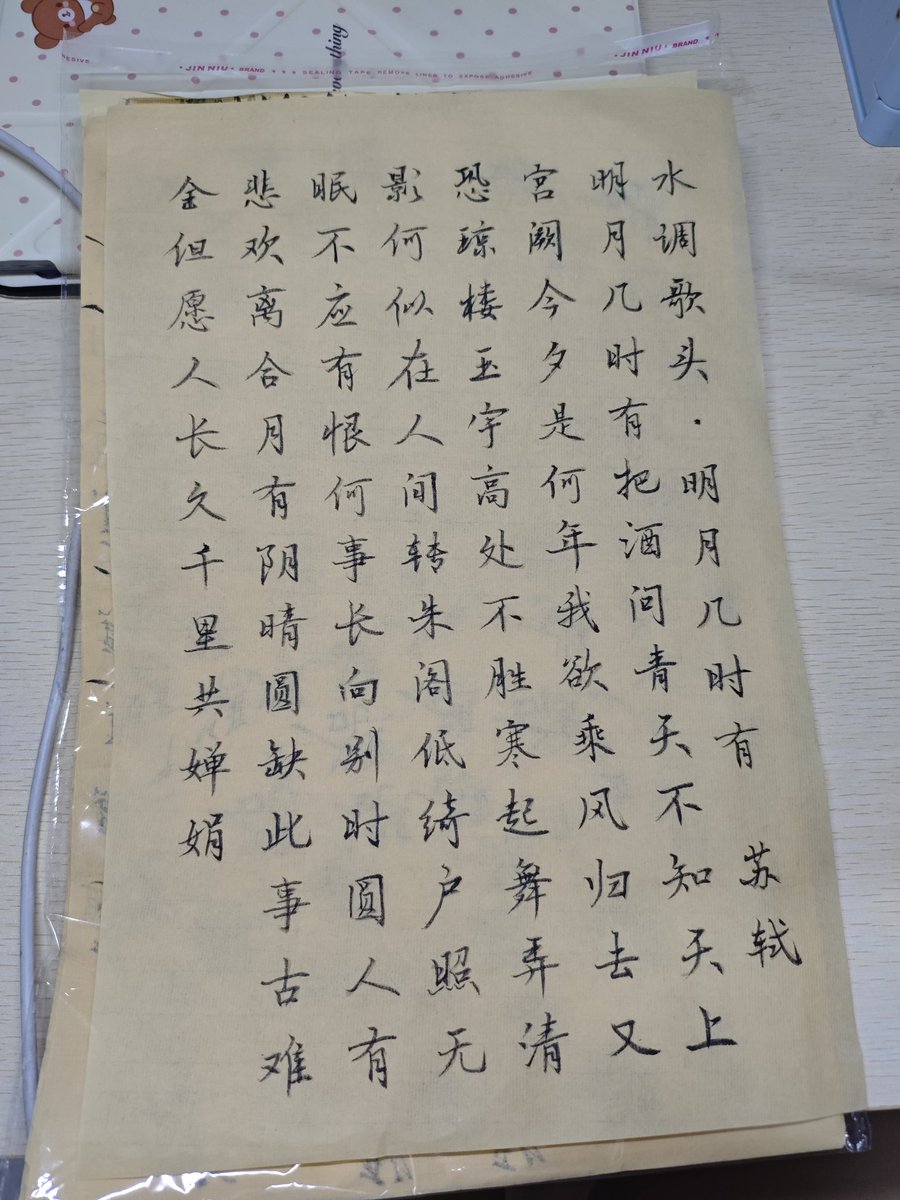 水调歌头·明月几时有 苏轼
明月几时有把酒问青天不知天上
宫阙今夕是何年我欲乘风归去又
恐琼楼玉宇高处不胜寒起舞弄清
影何似在人间转朱阁低绮户照无
眠不应有恨何事长向别时圆人有
悲欢离合月有阴晴圆缺此事古难
金但愿人长久千里共婵娟
ESIVE · JIN NIU · BRAND ★ ★ ★ SEALING TAPE REMOVE LINER TO EXPOSE ADHESIVE · JIN NIU · BRAND